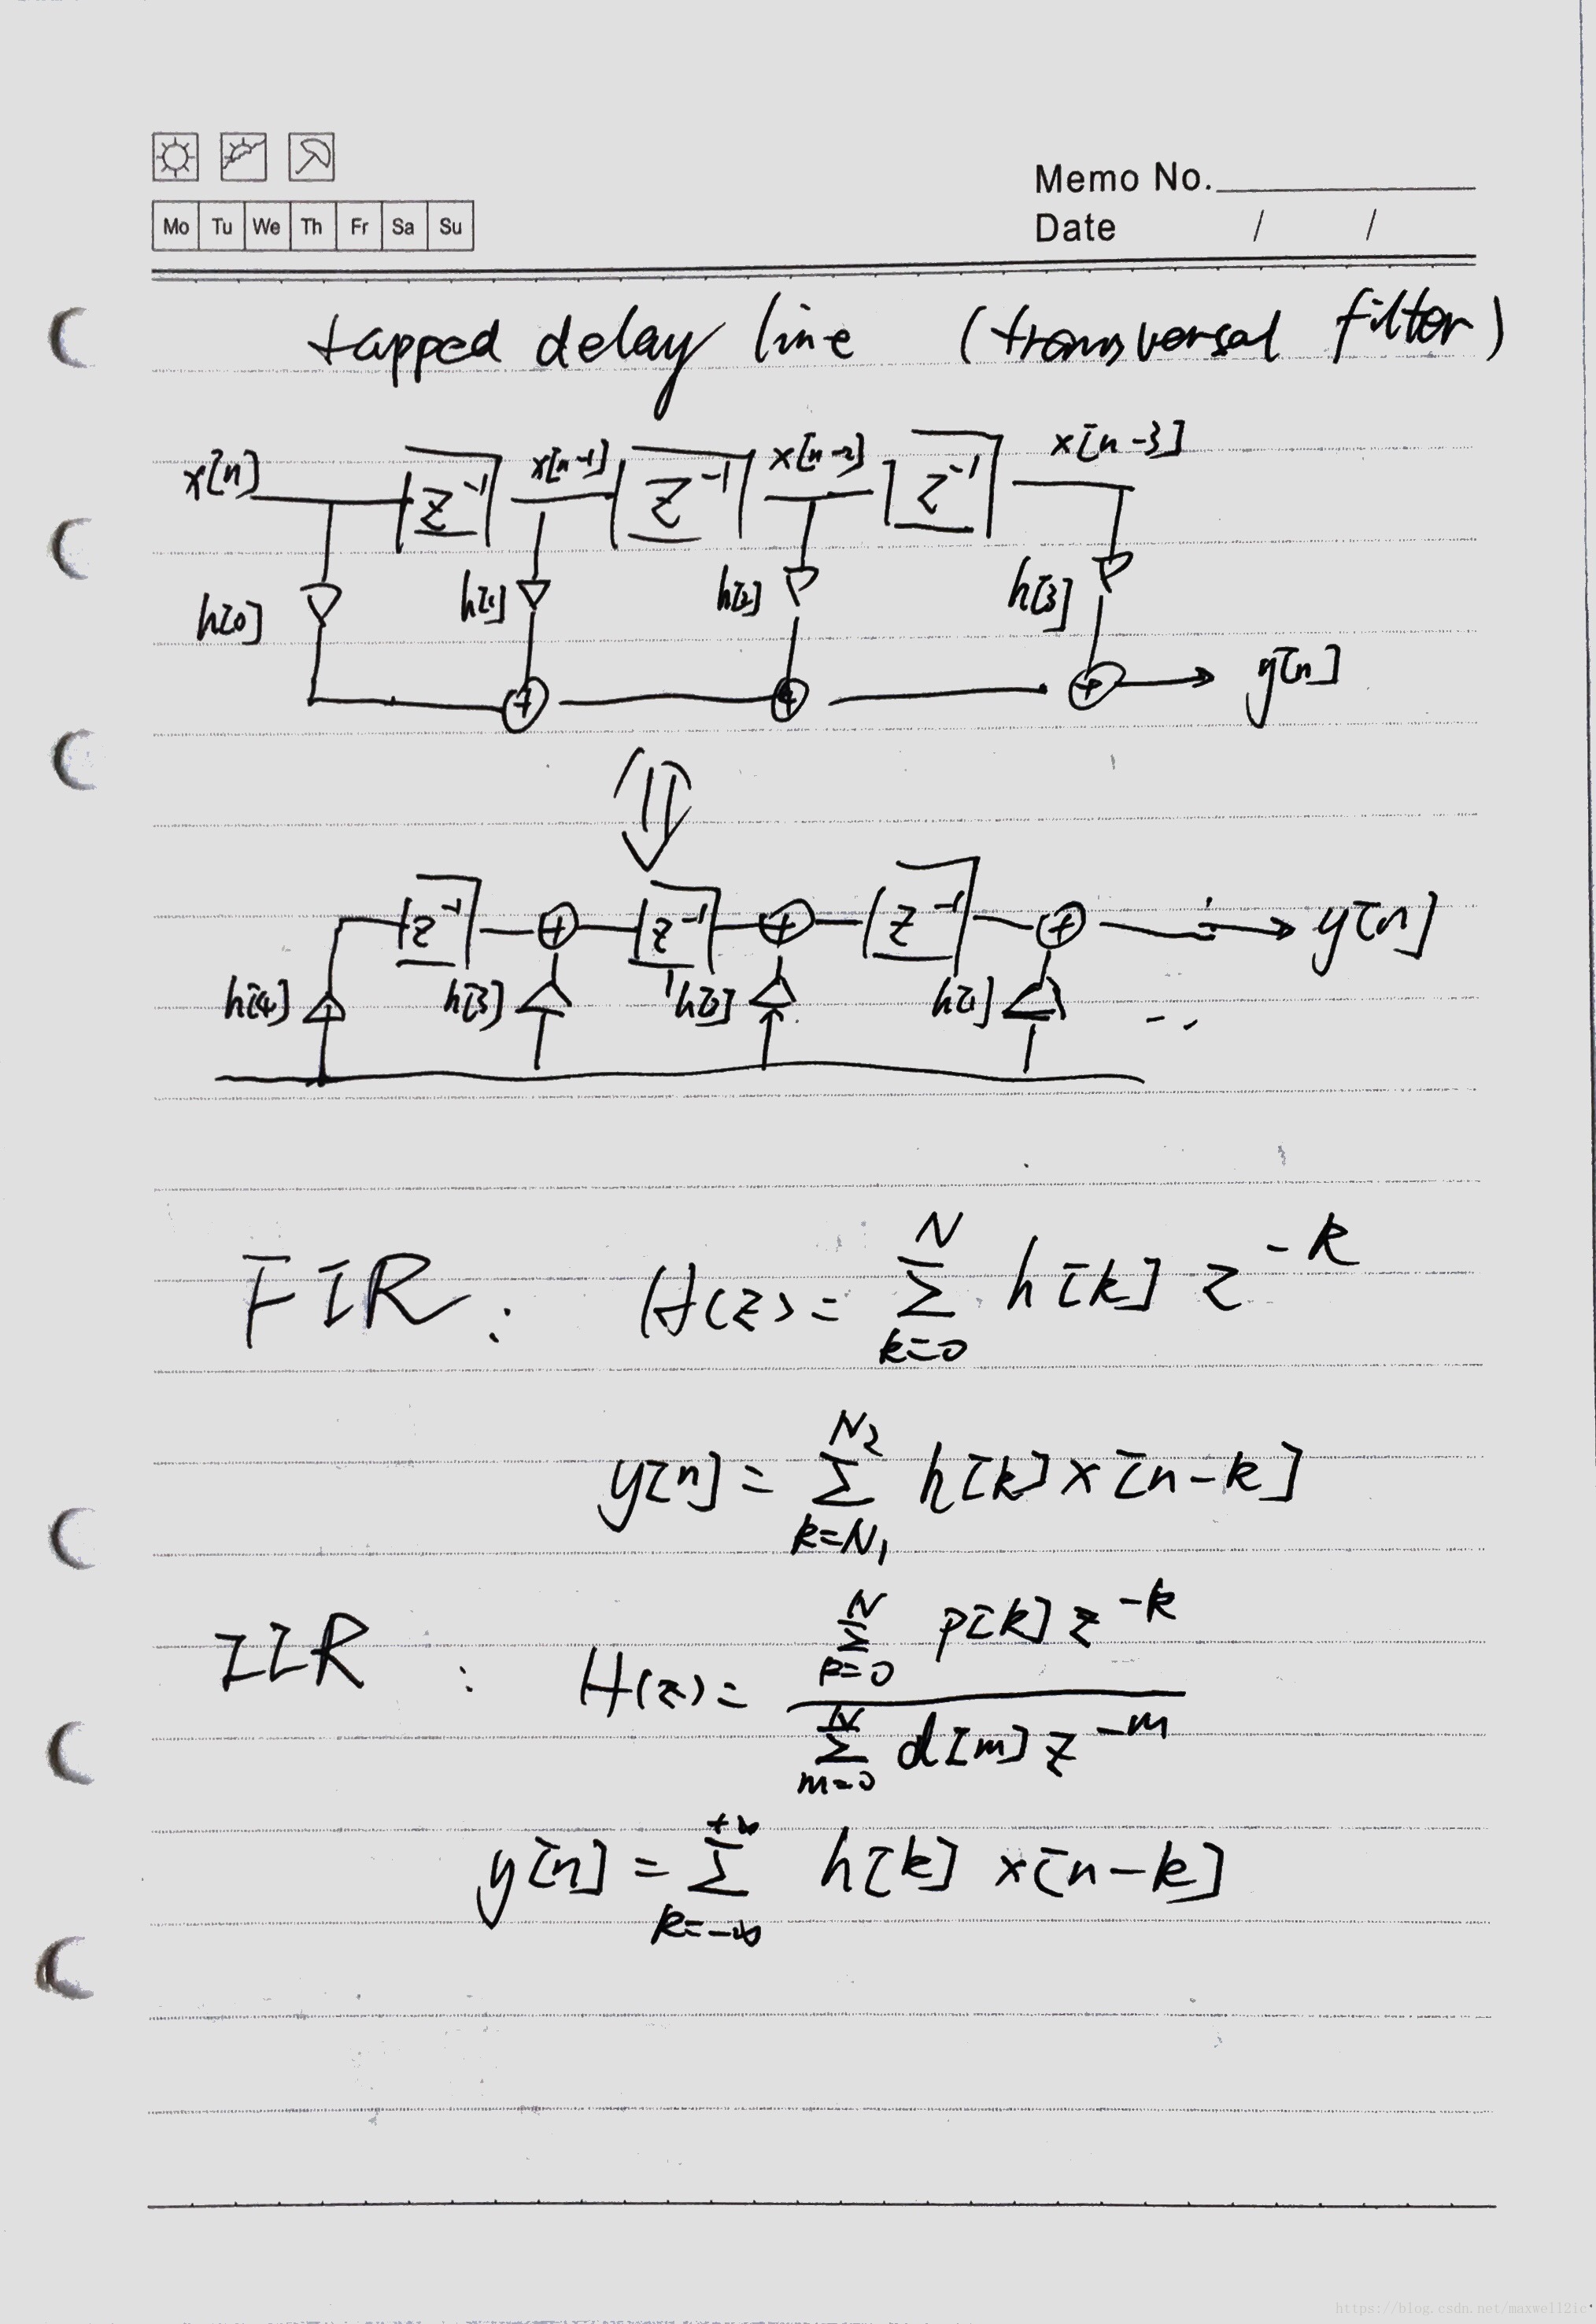 Memo No.
Mo Tu We Th Fr Sa Su
Date / /
tapped delay line (transversal filter)
x[n] z⁻¹ x[n-1] z⁻¹ x[n-2] z⁻¹ x[n-3]
h[0] h[1] h[2] h[3]
+ + + y[n]
z⁻¹ + z⁻¹ + z⁻¹ + y[n]
h[4] h[3] h[2] h[1] ...
FIR: H(z) = ∑_{k=0}^{N} h[k] z^{-k}
y[n] = ∑_{k=N₁}^{N₂} h[k] x[n-k]
IIR : H(z) = (∑_{k=0}^{N} p[k] z^{-k}) / (∑_{m=0}^{N} d[m] z^{-m})
y[n] = ∑_{k=-∞}^{+∞} h[k] x[n-k]
https://blog.csdn.net/maxwell2ic